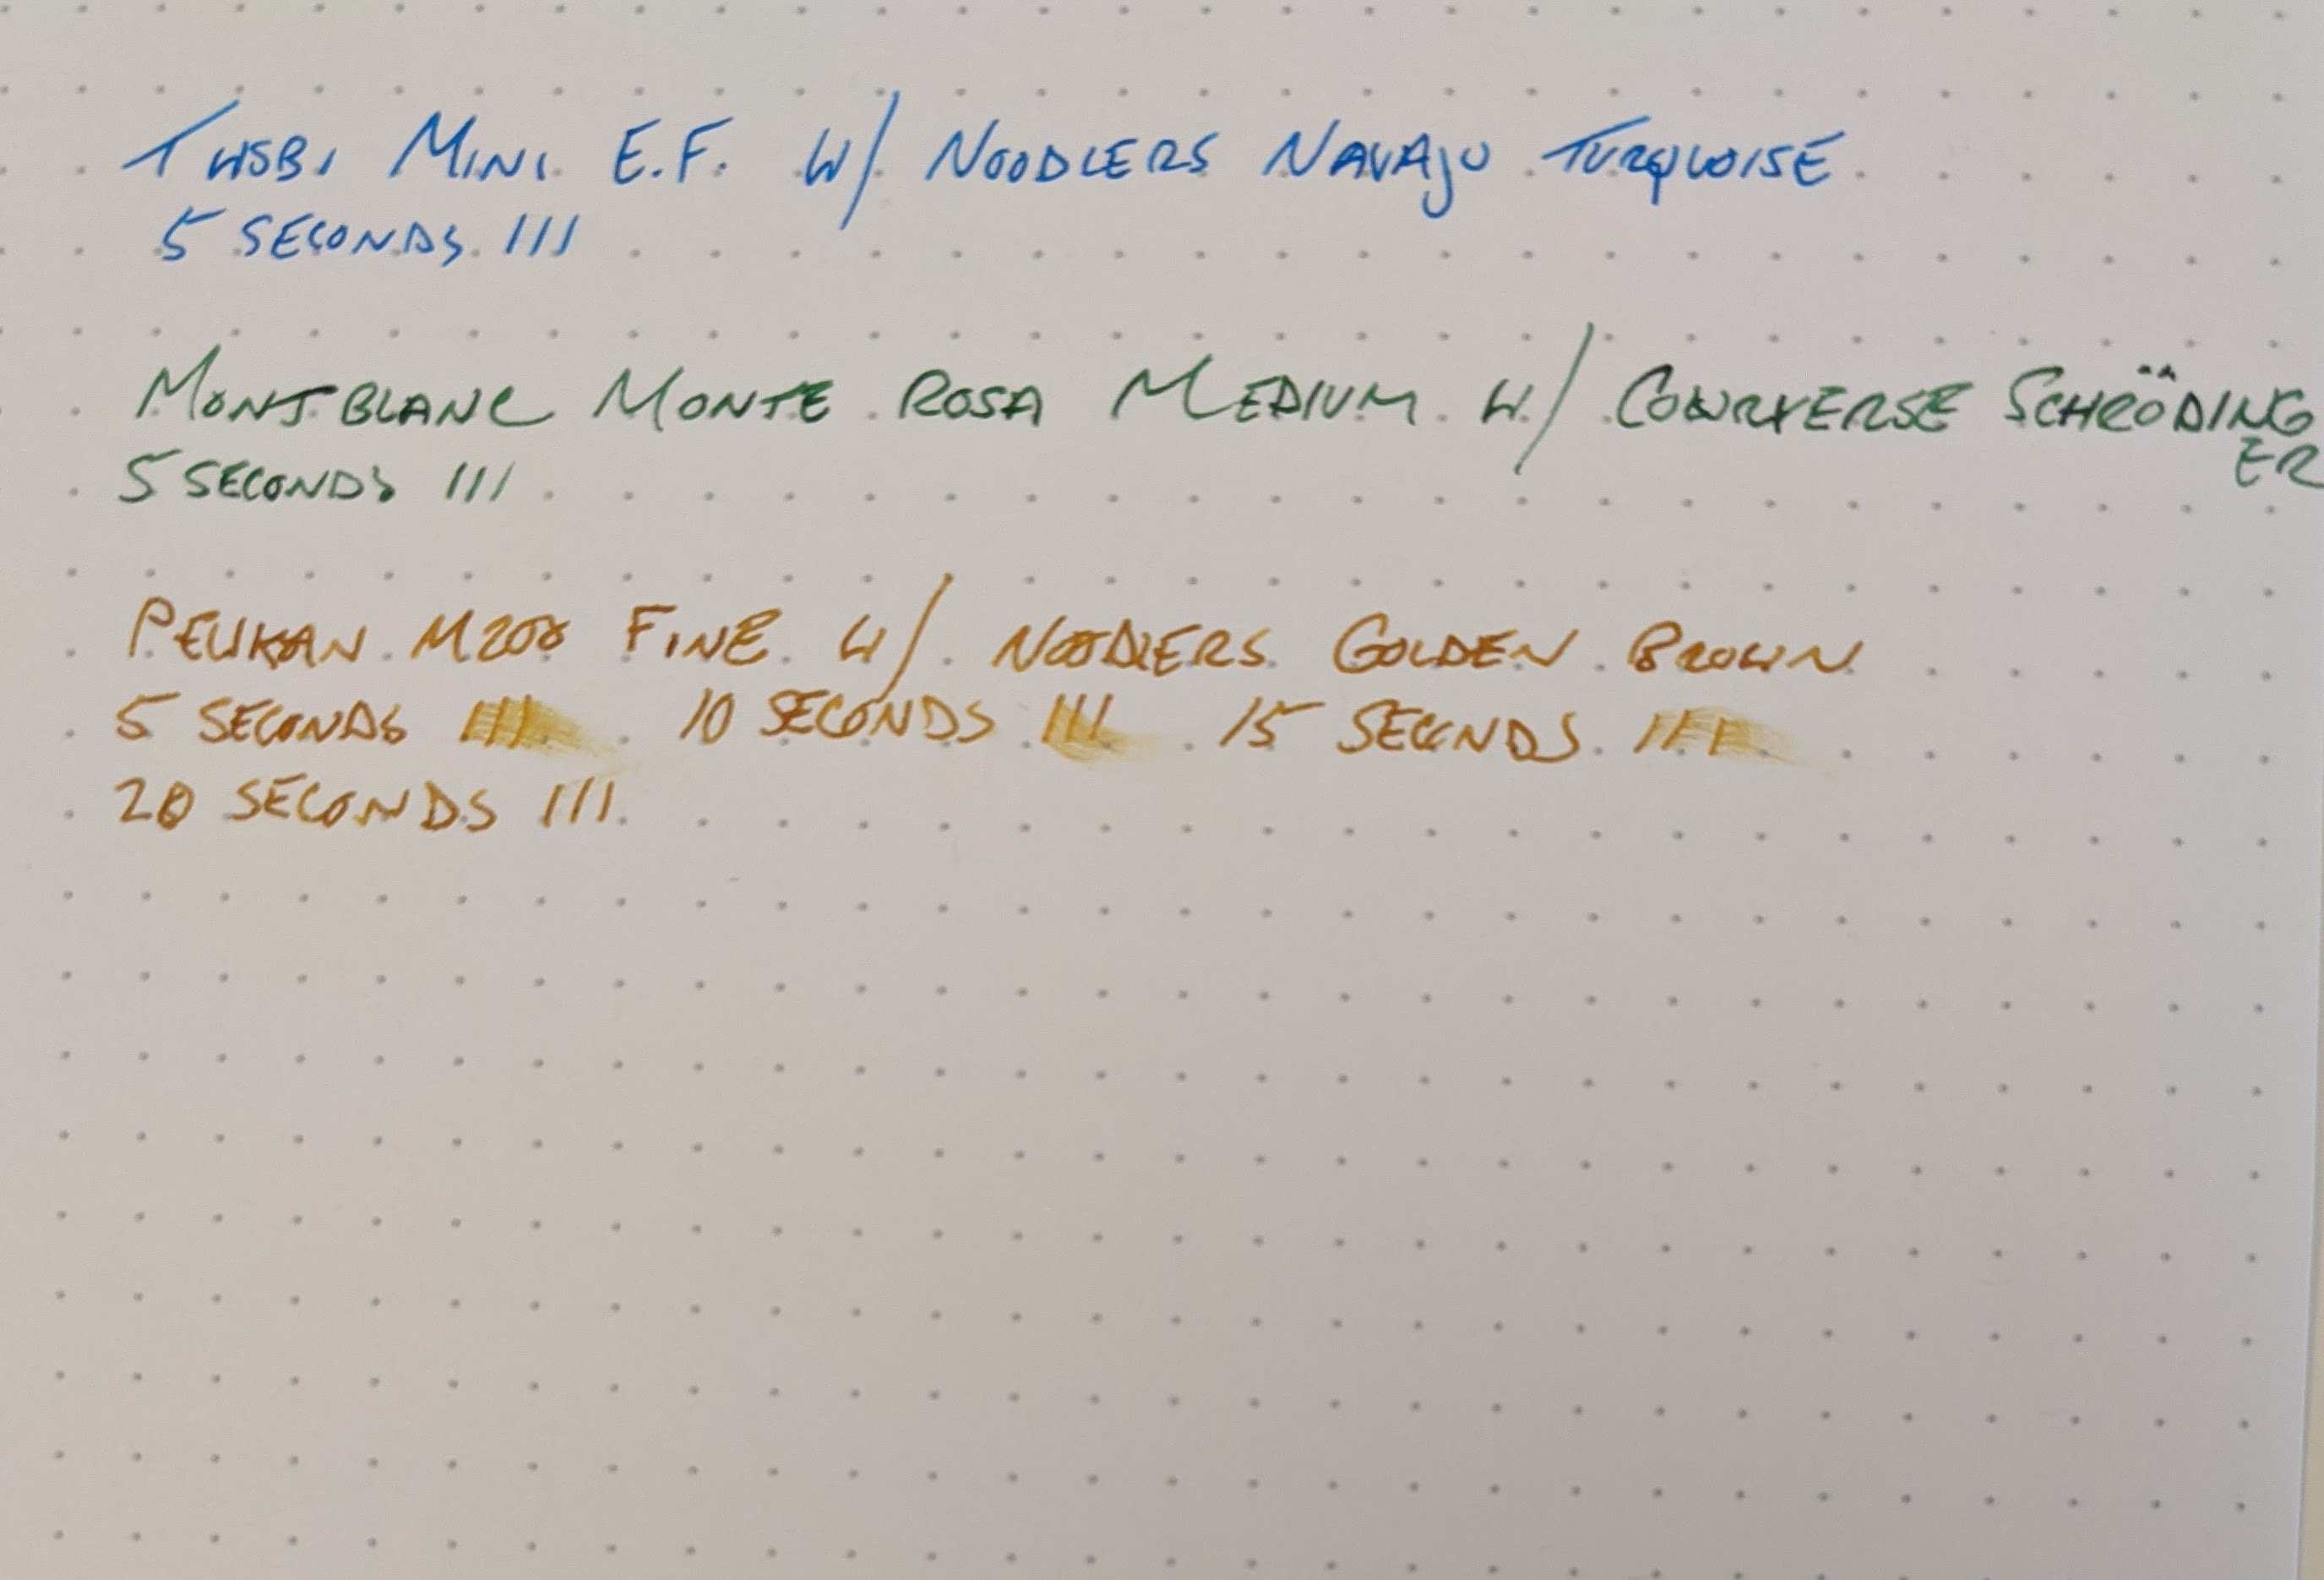 TWSBI MINI E.F. W/ NOODLERS NAVAJO TURQUOISE
5 SECONDS III
MONTBLANC MONTE ROSA MEDIUM W/ SCHRÖDINGER
5 SECONDS III
PELIKAN M200 FINE W/ NOODLERS GOLDEN BROWN
5 SECONDS III 10 SECONDS III 15 SECONDS III
20 SECONDS III